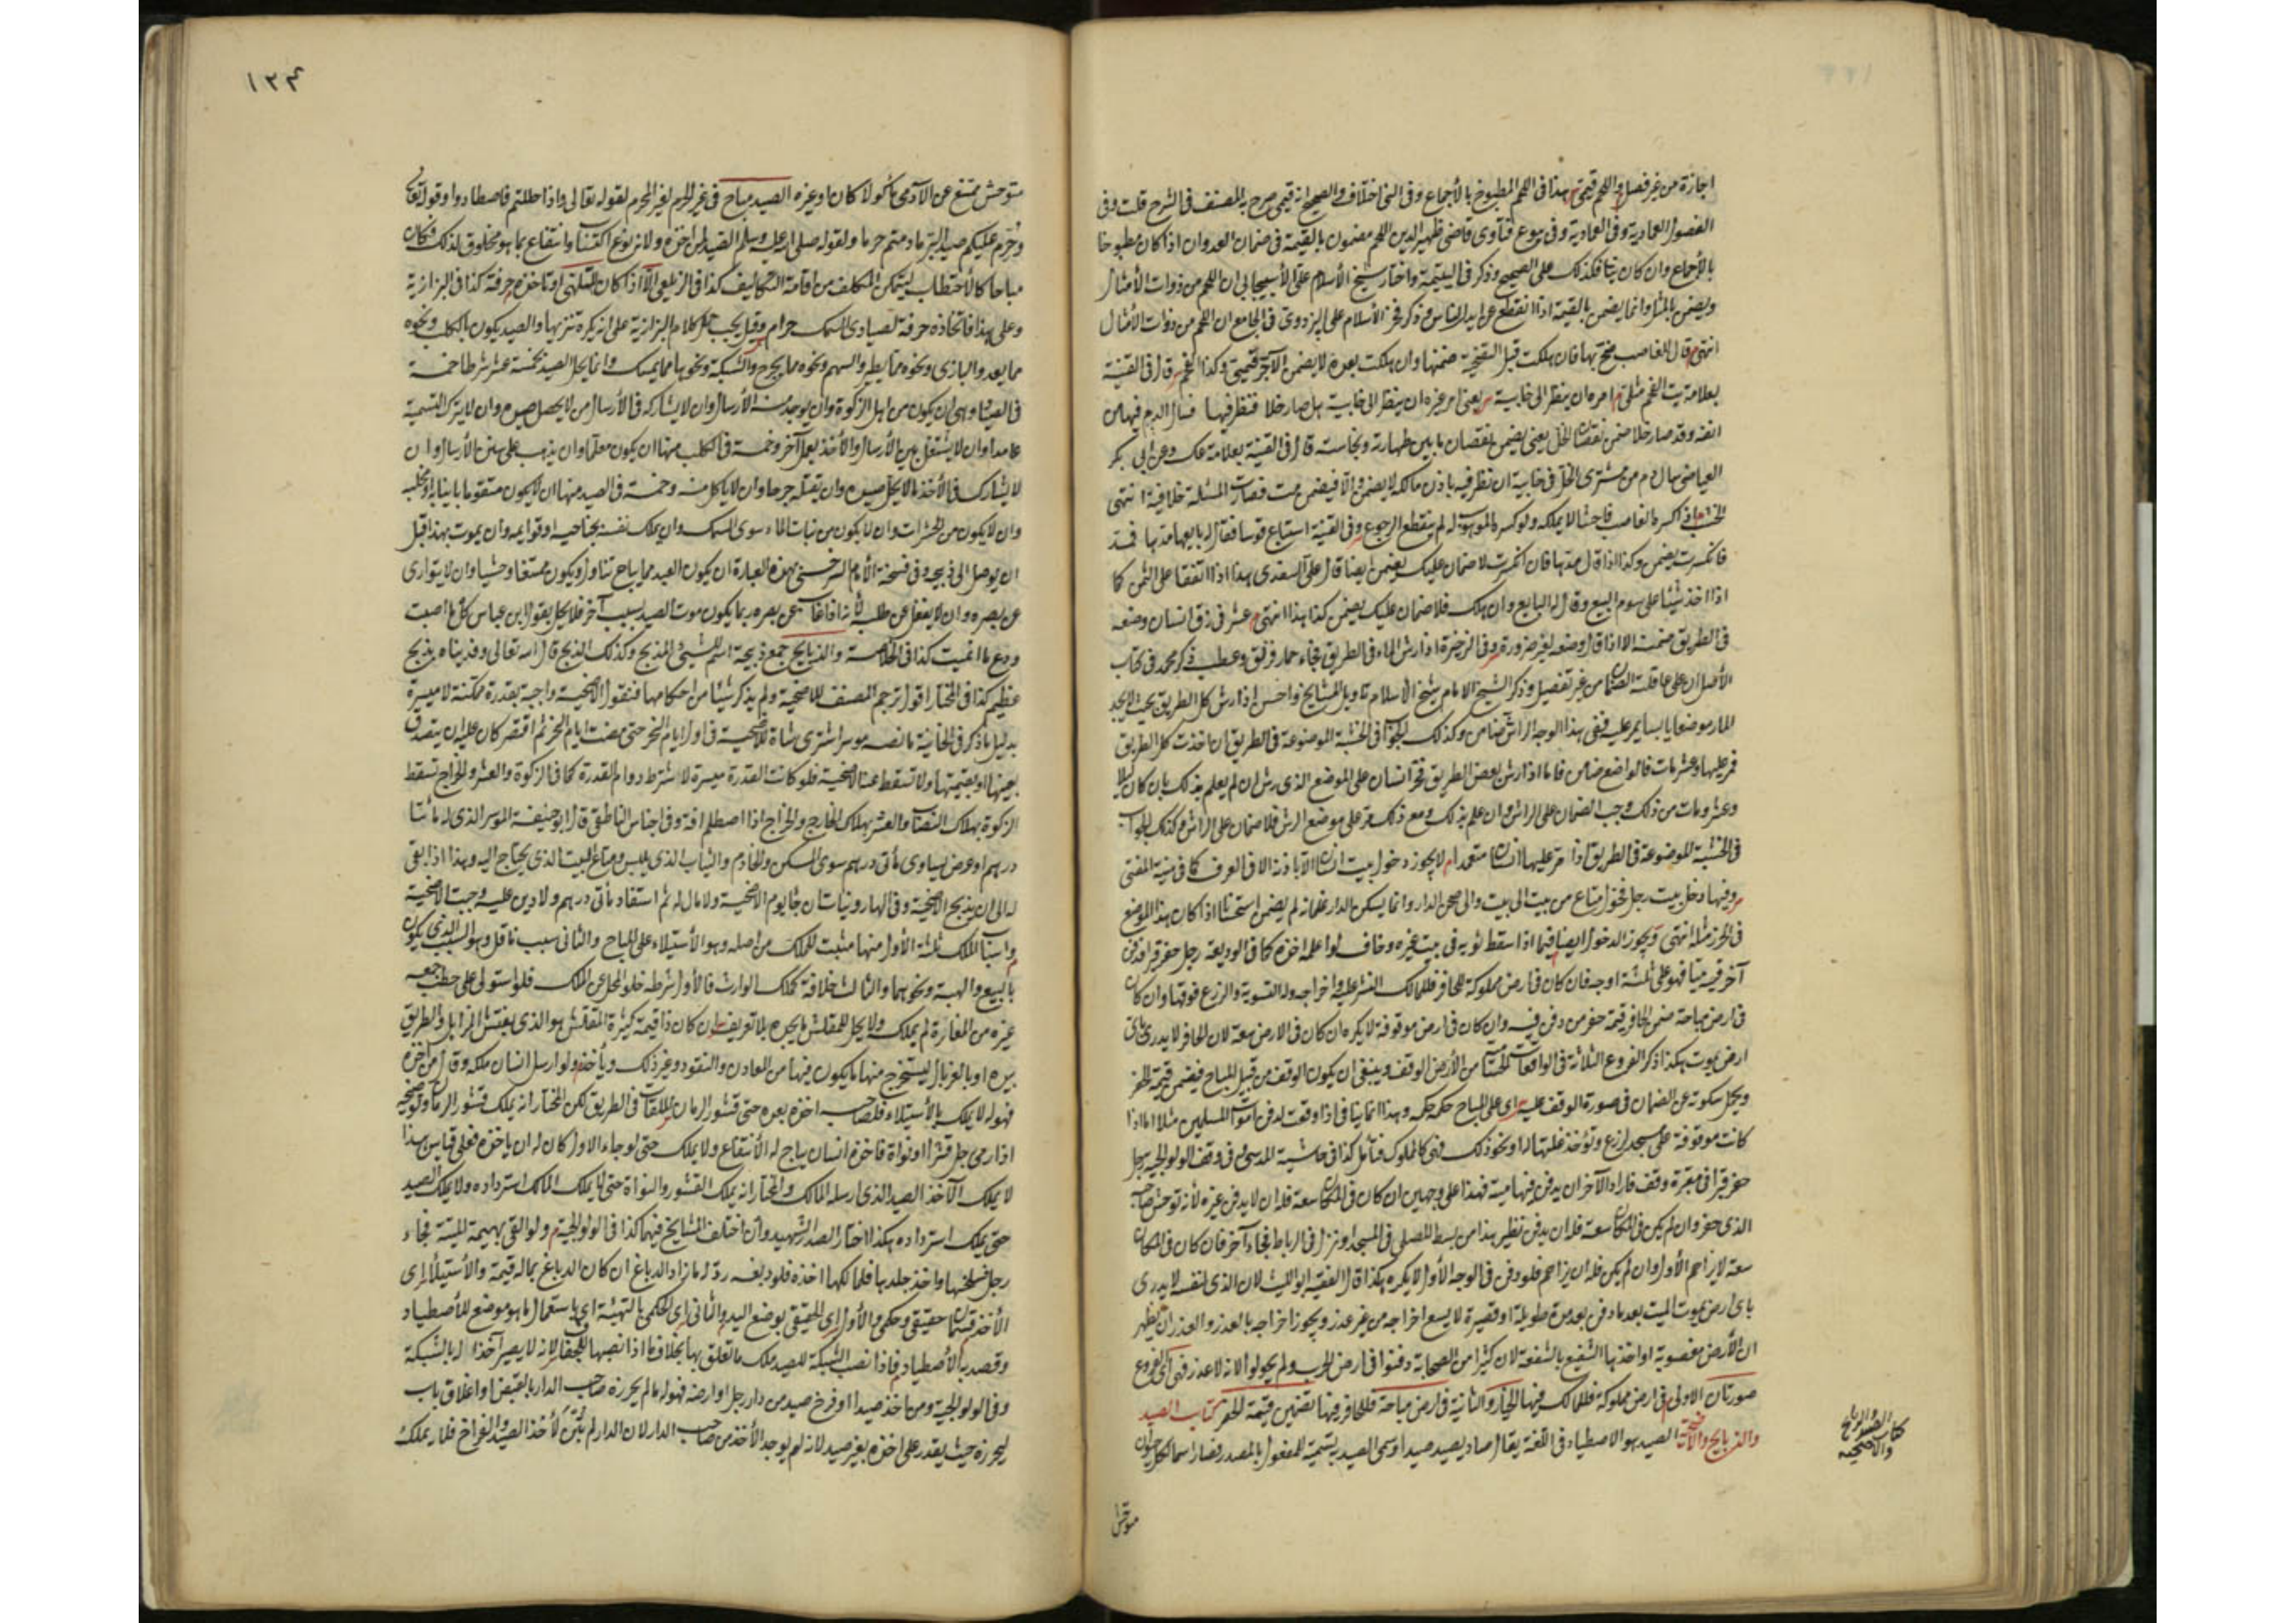 اجازة من غير فصل واللحم قيمي هذا في اللحم المطبوخ بالاجماع وفي الني اختلاف والصحيح انه قيمي صرح به المصنف في الشرح قلت وفي
الفصول العادية وفي العمادية وفي بيوع فتاوى قاضي ظهير الدين اللحم مضمون بالقيمة في ضمان العدوان اذا كان مطبوخا
بالاجماع وان كان نيا فكذلك على الصحيح وذكر في اليتيمة واختار شيخ الاسلام علي الاسبيجابي ان اللحم من ذوات الامثال
ويضمن بالمثل وانما يضمن بالقيمة اذا انقطع عن ايدي الناس وذكر فخر الاسلام علي البزدوي في الجامع ان اللحم من ذوات الامثال
انتهى قال الغاصب هلكت قبل ضمنها وان هلكت بعده لا يضمن الآجر قيمي وكذا الفحم قال في القنية
بعلامة بت الفحم مثلي امره ان ينظر الى خابية يعني امر غيره ان ينظر الى خابية هل صار خلا فنظر فيها فسال الدم فيها من
انفه وقد صار خلا ضمن نقصان الخل يعني يضمن نقصان ما بين طهارته ونجاسته قال في القنية بعلامة عك وعن ابي بكر
العياضي سال دم من مشتري الخل في خابية ان نظر فيه باذن مالكه لا يضمن والا فيضمن مت فصارت المسئلة خلافية انتهى
الخشب اذا كسره الغاصب فاحشا لا يملكه ولو كسره الموهوب له لم ينقطع الرجوع وفي القنية استباع قوسا فقال له بايعها مدها فمد
فانكسرت يضمن وكذا اذا قال مدها فان انكسرت لا ضمان عليك يضمن ايضا قال علي السغدي هذا اذا اتفقا على الثمن كما
اذا اخذ شيئا على سوم البيع وقال له البايع وان هلك فلا ضمان عليك يضمن كذا هذا انتهى عثر في زق انسان وضعه
في الطريق ضمنه الا اذا وضعه لغير ضرورة وفي الذخيرة اذا رش الماء في الطريق فجاء حمار فزلق وعطب ذكر محمد في كتاب
الاصل ان على عاقلته الضمان من غير تفصيل وذكر الشيخ الامام شيخ الاسلام تاويل المشايخ اذا رش كل الطريق بحيث لا يجد
المار موضعا يابسا يمر عليه ففي هذا الوجه الراش ضامن وكذلك الجواب في الخشبة الموضوعة في الطريق ان اخذت كل الطريق
فمر عليها وعثر مات فالواضع ضامن فاما اذا رش بعض الطريق فمر انسان على الموضع الذي رش ان لم يعلم بذلك بان كان ليلا
وعثر ومات من ذلك وجب الضمان على الراش وان علم بذلك ومع ذلك مر على موضع الرش فلا ضمان على الراش وكذلك الجواب
في الخشبة الموضوعة في الطريق اذا مر عليها انسان متعمدا لا يجوز دخول بيت انسان الا باذنه الا في العرف كما في منية المفتي
وفيها دخل بيت رجل فحول متاع من بيت الى بيت والى صحن الدار وانما يسكن الدار غلمانه لم يضمن استحسانا اذا كان هذا الموضع
في الحرز مثله انتهى ويجوز الدخول ايضا فيما اذا سقط ثوبه في بيت غيره وخاف لو اعلمه اخذه كما في الوديعة رجل حفر قبرا فدفن
آخر فيه ميتا فهو على ثلثة اوجه فان كان في ارض مملوكة للحافر فللمالك النبش عليه واخراجه وله التسوية والزرع فوقها وان كان
في ارض مباحة ضمن الحافر قيمة حفره من دفن فيه وان كان في ارض موقوفة لا يكره ان كان في الارض سعة لان الحافر لا يدري باي
ارض يموت هكذا ذكر الفروع الثلاثة في الواقعات الحسامية من الارض الوقف وينبغي ان يكون الوقف من قبيل المباح فيضمن قيمة الحفر
ويحمل سكوته عن الضمان في صورة الوقف عليه اي على المباح حكمه حكمه وهذا انما يتاتى في اذا وقفت لدفن اموات المسلمين مثلا اما اذا
كانت موقوفة على مسجد تزرع وتؤخذ غلتها له او نحو ذلك فهي كالمملوك فتامل كذا في حاشية المدسى في وقف الولوالجية رجل
حفر قبرا في مقبرة وقف فاراد الآخر ان يدفن فيها ميته فهذا على وجهين ان كان في المكان سعة فله ان لا يدفن غيره لانه توحش صاحبه
الذي حفر وان لم يكن في المكان سعة فله ان يدفن نظير هذا من بسط المصلى في المسجد او نزل في الرباط فجاء آخر فان كان في المكان
سعة لا يزاحم الاول وان لم يكن فله ان يزاحم فلو دفن في الوجه الاول لا يكره هكذا قال الفقيه ابو الليث لان الذي لنفسه لا يدري
باي ارض يموت الميت بعد ما دفن بعد مدة طويلة او قصيرة لا يسع اخراجه من غير عذر ويجوز اخراجه بالعذر والعذر ان يظهر
ان الارض مغصوبة او اخذها الشفيع بالشفعة لان كثيرا من الصحابة دفنوا في ارض الحرب ولم يحولوا لانه لا عذر فهي اي الفروع
صورتان الاولى في ارض مملوكة فللمالك فيها الخيار والثانية في ارض مباحة فللحافر فيها تضمين قيمة الحفر كتاب الصيد
والذبايح والاضحية الصيد هو الاصطياد في اللغة يقال صاد يصيد صيدا وسمي الصيد به تسمية للمفعول بالمصدر فصار اسما لكل حيوان
كتاب الصيد والذبايح
والاضحية
متوحش
١٣٤
متوحش ممتنع عن الآدمي مأكولا كان او غيره الصيد مباح في غير الحرم لغير المحرم لقوله تعالى واذا حللتم فاصطادوا وقوله تعالى
وحرم عليكم صيد البر ما دمتم حرما ولقوله صلى الله عليه وسلم الصيد لمن اخذه ولانه نوع اكتساب وانتفاع بما هو مخلوق لذلك فكان
مباحا كالاحتطاب ليتمكن المكلف من اقامة التكاليف كذا في الزيلعي الا اذا كان للتلهي او ياخذه حرفة كذا في البزازية
وعلى هذا فاتخاذه حرفة لصيادي السمك حرام وقيل يجب حمل كلام البزازية على انه يكره تنزيها والصيد يكون بالكلب ونحوه
مما يعدو والبازي ونحوه مما يطير والسهم ونحوه مما يجرح والشبكة ونحوها مما يمسك وانما يحل الصيد بخمسة عشر شرطا خمسة
في الصياد وهي ان يكون من اهل الزكوة وان يوجد منه الارسال وان لا يشاركه في الارسال من لا يحل صيده وان لا يترك التسمية
عامدا وان لا يشتغل بين الارسال والاخذ بعمل آخر وخمسة في الكلب منها ان يكون معلما وان يذهب على سنن الارسال وان
لا يشاركه في الاخذ ما لا يحل صيده وان يقتله جرحا وان لا ياكل منه وخمسة في الصيد منها ان لا يكون متقويا بانيابه او بمخلبه
وان لا يكون من الحشرات وان لا يكون من نبات الماء سوى السمك وان يملك نفسه بجناحيه او قوايمه وان يموت بهذا قبل
ان يوصل الى ذبحه وفي نسخة الامام السرخسي بهذه العبارة ان يكون الصيد مما يباح تناوله ويكون ممتنعا وحشيا وان لا يتوارى
عن بصره وان لا يقعد عن طلبه لانه اذا غاب عن بصره ربما يكون موت الصيد بسبب آخر فلا يحل لقول ابن عباس كل ما اصميت
ودع ما انميت كذا في الخلاصة والذبايح جمع ذبيحة اسم للشيء المذبوح وكذلك الذبح قال الله تعالى وفديناه بذبح
عظيم كذا في المختار اقول ترجم المصنف للاضحية ولم يذكر شيئا من احكامها فنقول الاضحية واجبة بقدرة ممكنة لا ميسرة
بدليل ما ذكر في الخانية ما نصه موسر اشترى شاة للاضحية في اول ايام النحر حتى مضت ايام النحر ثم افتقر كان عليه ان يتصدق
بعينها او بقيمتها ولا تسقط عنه الاضحية فلو كانت القدرة ميسرة لاشترط دوام القدرة كما في الزكوة والعشر والخراج تسقط
الزكوة بهلاك النصاب والعشر بهلاك الخارج والخراج اذا اصطلم آفة وفي اجناس الناطفي قال ابو حنيفة الموسر الذي له مائتا
درهم او عرض يساوي مأتي درهم سوى المسكن والخادم والثياب الذي يلبس ومتاع البيت الذي يحتاج اليه وهذا اذا بقي
له الى ان يذبح الاضحية وفي الهارونيات ان جا يوم الاضحية ولا مال له ثم استفاد مأتي درهم ولا دين عليه وجبت الاضحية
واسباب الملك ثلثة الاول منها مثبت للملك من اصله وهو الاستيلاء على المباح والثاني سبب ناقل وهو السبب الذي يكون
بالبيع والهبة ونحوهما والثالث خلافة كملك الوارث فالاول شرطه خلو المحل عن الملك فلو استولى على حطب جمعه
غيره من المفازة لم يملكه ولا يحل للمقلش ما يجده بلا تعريف ان كان ذا قيمة كثيرة المقلش هو الذي يفتش المزابل والطريق
بيده او بالغربال ليستخرج منها ما يكون فيها من المعادن والنقود وغير ذلك ويأخذه ولو ارسل انسان ملكه وقال من اخذه
فهو له لا يملك بالاستيلاء فلصاحبه اخذه بعده حتى قشور الرمان الملقاة في الطريق لكن المختار انه يملك قشور الرمان
اذا رمى رجل قشرا او نواة فاخذه انسان يباح له الانتفاع ولا يملك حتى لو جاء الاول كان له ان ياخذه فعلى قياس هذا
لا يملك الآخذ الصيد الذي ارسله المالك والمختار انه يملك القشور والنواة حتى لا يملك المالك استرداده ولا يملك الصيد
حتى يملك استرداده هكذا اختار الصدر الشهيد وان اختلف المشايخ فيهما كذا في الولوالجية ولو القى بهيمة الميتة فجاء
رجل فسلخها واخذ جلدها فلمالكها اخذه فلو دبغه رد له ما زاد الدباغ ان كان الدباغ بماله قيمة والاستيلاء اي
الاخذ قسمان حقيقي وحكمي والاول اي الحقيقي بوضع اليد والثاني اي الحكمي بالتهيئة اي باستعمال ما هو موضع للاصطياد
وقصد به الاصطياد فاذا نصب الشبكة للصيد ملك ما تعلق بها بخلاف ما اذا نصبها للجفاف لانه لا يصير آخذا له بالشبكة
وفي الولوالجية ومن اخذ صيدا او فرخ صيد من دار رجل او ارضه فهو له ما لم يحرزه صاحب الدار بالقبض او اغلاق باب
ليحرزه حيث يقدر على اخذه بغير صيد لانه لم يوجد الاخذ من صاحب الدار لان الدار لم تبن لاخذ الصيد والفراخ فلا يملك